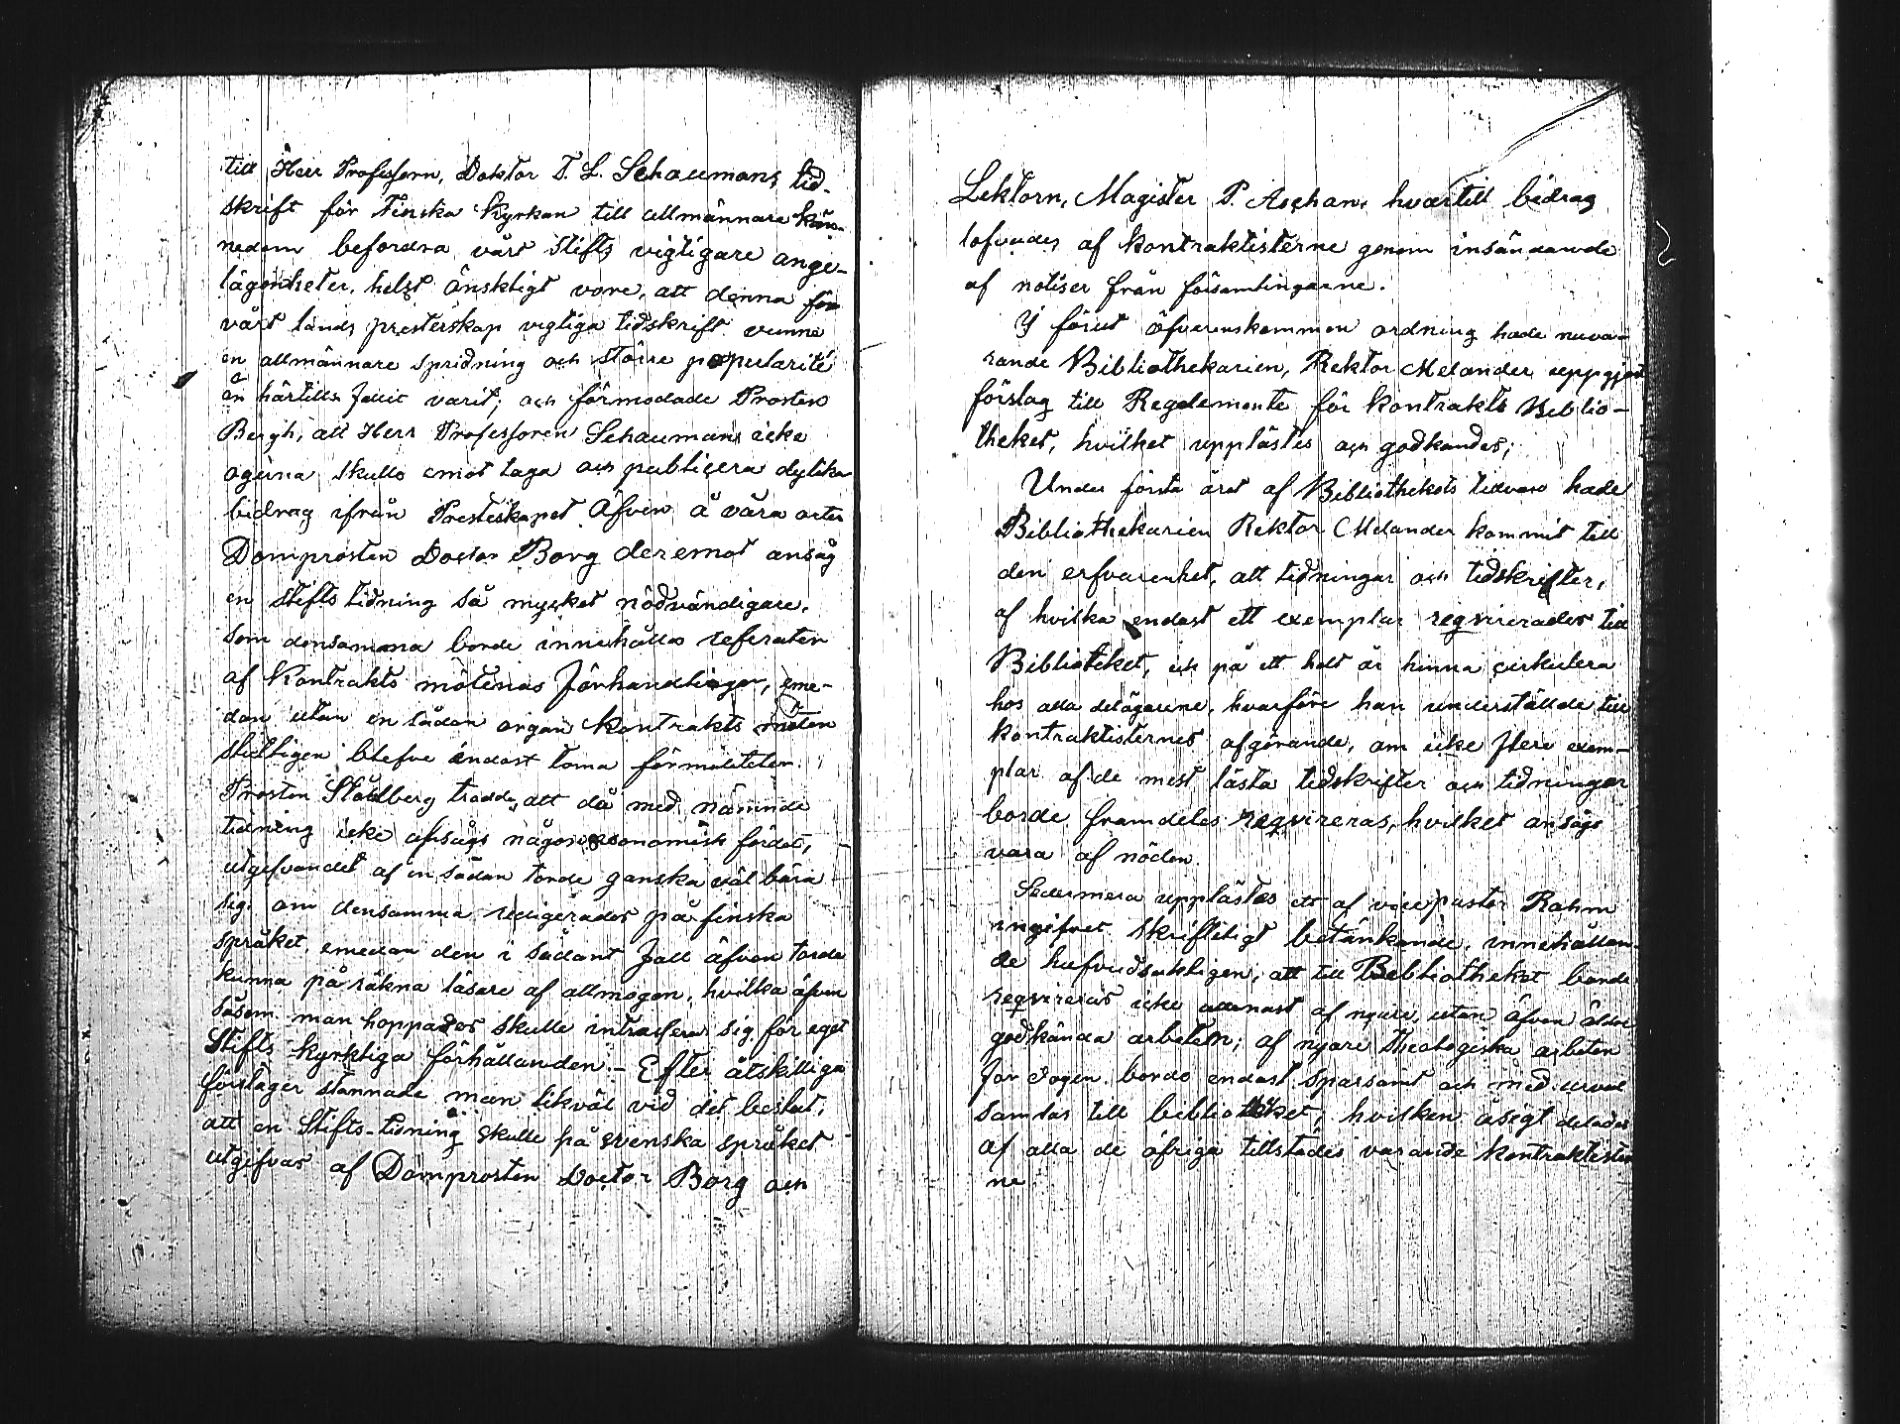 till Herr Professorn, Doktor F. L. Schaumans tid-
skrift för Finska Kyrkan till allmännare kän-
nedom befordra vårt Stifts vigtigare ange-
lägenheter, helst önskligt vore, att denna för
vårt lands presterskap vigtiga tidskrift vunne
en allmännare spridning och större popularité
än härtills fallit varit; och förmodade Prosten
Bergh, att Herr Professoren Schauman icke
ogerna skulle emot taga och publicera dylika
bidrag ifrån Presteskapet äfven å våra orter
Domprosten Doctor Borg deremot ansåg
en stifts tidning så mycket nödvändigare,
som densamma borde innehålla referater
af Kontrakts mötenas förhandlingar, eme-
dan utan en sådan organ kontrakts möten
slutligen blefve endast toma formaliteter.
Prosten Ståhlberg trodde, att då med nämnde
tidning icke afsågs någon oeconomisk fördel,
utgifvandet af en sådan torde ganska väl bära
sig om densamma redigerades på finska
språket, emedan den i sådant fall äfven torde
kunna på räkna läsare af allmogen, hvilka äfven
såsom man hoppades skulle intressera sig för eget
Stifts kyrkliga förhållanden. – Efter åtskilliga
förslager stannade man likväl vid det beslut,
att en Stifts-tidning skulle på svenska språket
utgifvas af Domprosten Doctor Borg och
Lektorn, Magister P. Aschan, hvartill bidrag
lofvades af kontraktisterne genom insändande
af notiser från församlingarne.
I förut öfverenskommen ordning hade nuva-
rande Bibliothekarien, Rektor Melander uppgjort
förslag till Reglemente för kontrakts Biblio-
theket, hvilket upplästes och godkändes;
Under första året af Bibliothekets tillvaro hade
Bibliothekarien Rektor Melander kommit till
den erfvarenhet, att tidningar och tidskrifter,
af hvilka endast ett exemplar reqvirerades till
Biblioteket, ej på ett helt år hinna cirkulera
hos alla delägarene, hvarföre han underställde till
kontraktisternes afgörande, om icke flere exem-
plar af de mest lästa tidskrifter och tidningar
borde framdeles reqvireras, hvilket ansågs
vara af nöden.
Sedermera upplästes ett af vice pastor Rahm
ingifvet skriftligt betänkande, innehållan-
de hufvudsakligen, att till Bibliotheket borde
reqvireras icke allenast af nyare, utan äfven äldre
godkända arbeten; af nyare theologiska arbeten
för dagen borde endast sparsamt och med urval
samlas till bibliotheket, hvilken åsigt delades
af alla de öfriga tillstädes varande kontraktister
ne